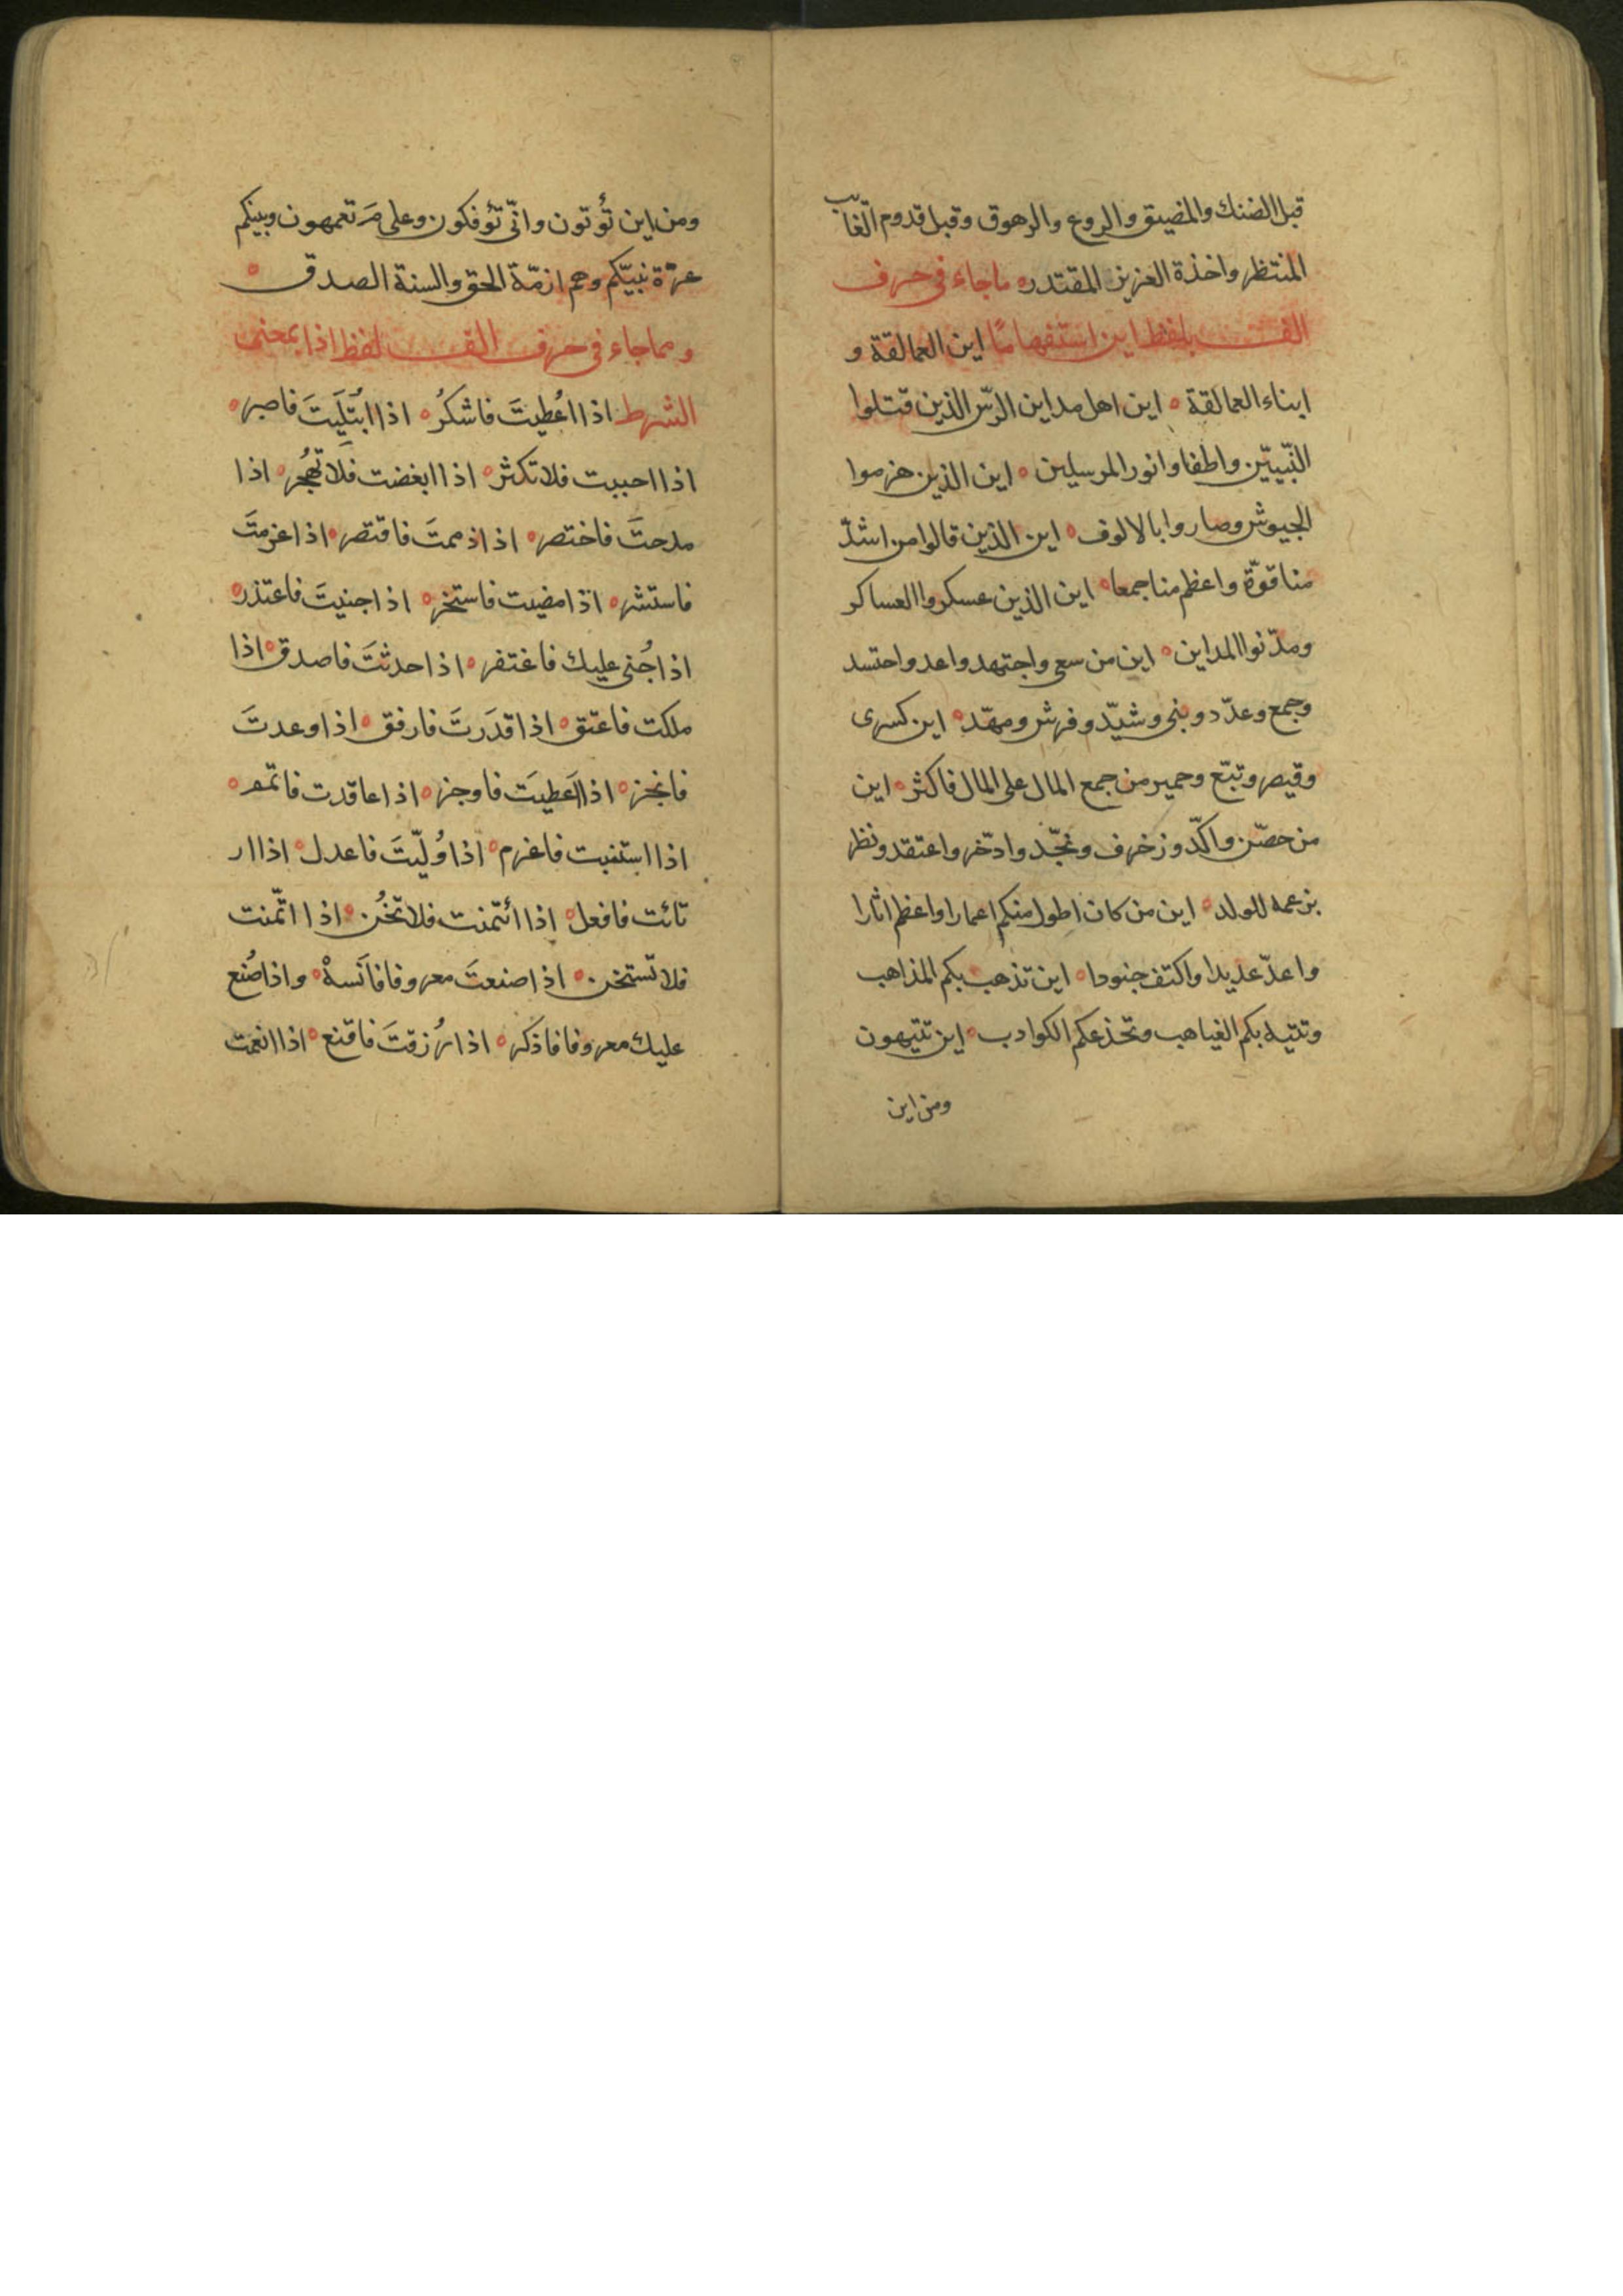 قبل الضنك والمضيق والروع والرهوق وقبل قدوم الغائب
المنتظر واخذة العزيز المقتدر ماجاء فى حرف
الف بلفظ اين استفهامًا اين العمالقة و
ابناء العمالقة اين اهل مداين الرّس الذين قتلوا
النّبييّن واطفاوا نور المرسلين اين الذين هزموا
الجيوش وصاروا بالالوف اين الذين قالوا من اشدّ
منا قوّة واعظم منا جمعا اين الذين عسكروا العساكر
ومدّنوا المداين اين من سعى واجتهد واعد واحتسد
وجمع وعدّد وبنى وشيّد وفرش ومهّد اين كسرى
وقيصر وتبّع وحمير من جمع المال على المال فاكثر اين
من حصّن واكدّ وزخرف ونجّد وادّخر واعتقد ونظر
بزعمه للولد اين من كان اطول منكم اعمارا واعظم اثارا
واعدّ عديدا واكتف جنودا اين تذهب بكم المذاهب
وتتيه بكم الغياهب وتخذعكم الكوادب اين تتيهون
ومن اين
ومن اين تُوتون وانّى تؤفكون وعلى مَ تعمهون وبينكم
عترة نبيّكم وهم ازمّة الحق والسنة الصدق
ومماجاء فى حرف الف لفظ اذا بمعنى
الشرط اذا اعُطيتَ فاشكرُ اذا ابُتلَيتَ فاصبر
اذا احببت فلا تكثر اذا ابغضت فلا تهجُر اذا
مدحتَ فاختصر اذا ذممتَ فاقتصر اذا عزمتَ
فاستشر اذا مضيت فاستخر اذا جنيتَ فاعتذر
اذا جُنى عليك فاغتفر اذا حدثتَ فاصدق اذا
ملكت فاعتق اذا قدَرتَ فارفق اذا وعدتَ
فانجز اذا اَعطيَت فاوجز اذا عاقدت فاتمم
اذا استنبت فاعزم اذا وُلّيتَ فاعدل اذا ار
تائت فافعل اذا ائتمنت فلا تخُن اذا اتّمنت
فلا تستخن اذا صنعتَ معروفا فاَنسهْ واذا صُنع
عليك معروفا فاذكر اذا رُزقتَ فاقنع اذا انعمت